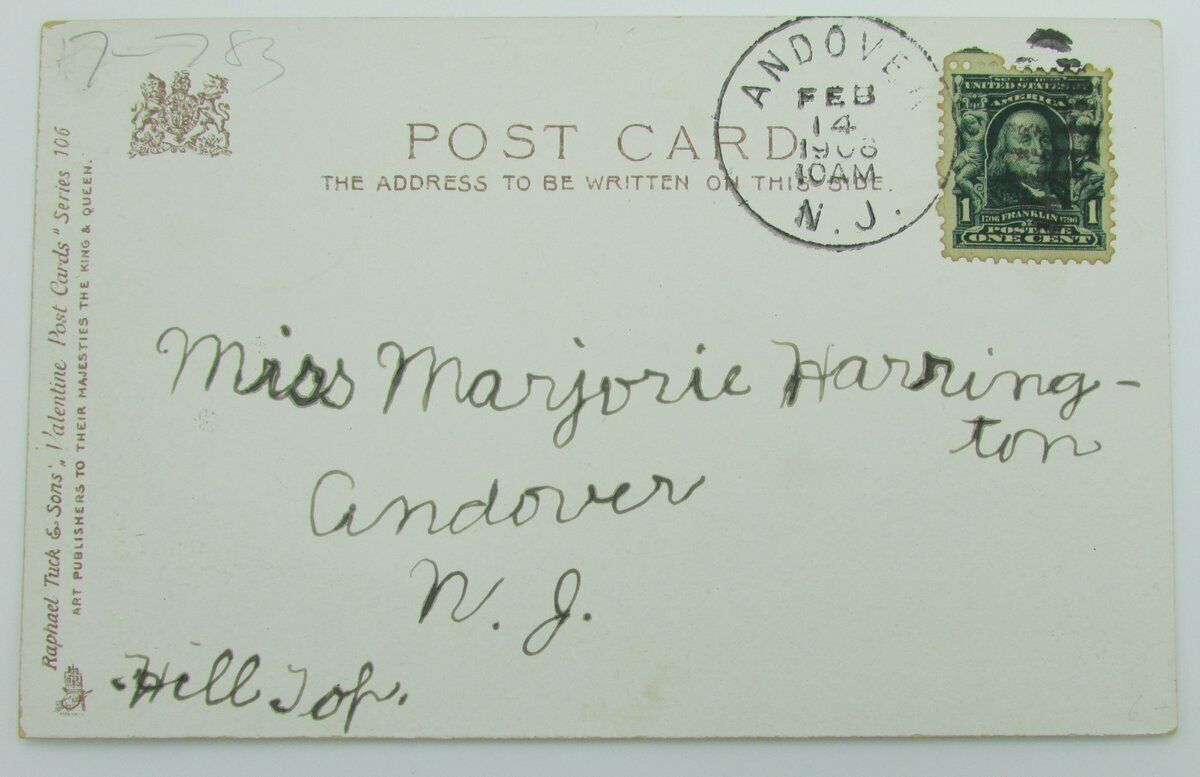 7-783
POST CARD
THE ADDRESS TO BE WRITTEN ON THIS SIDE.
ANDOVER
FEB
14
1908
10AM
N. J.
UNITED STATES OF
AMERICA
1 1706 FRANKLIN 1790 1
POSTAGE
ONE CENT
Raphael Tuck & Sons' „Valentine Post Cards" Series 106
ART PUBLISHERS TO THEIR MAJESTIES THE KING & QUEEN.
Miss Marjorie Harring-
ton
Andover
N. J.
Hill Top.